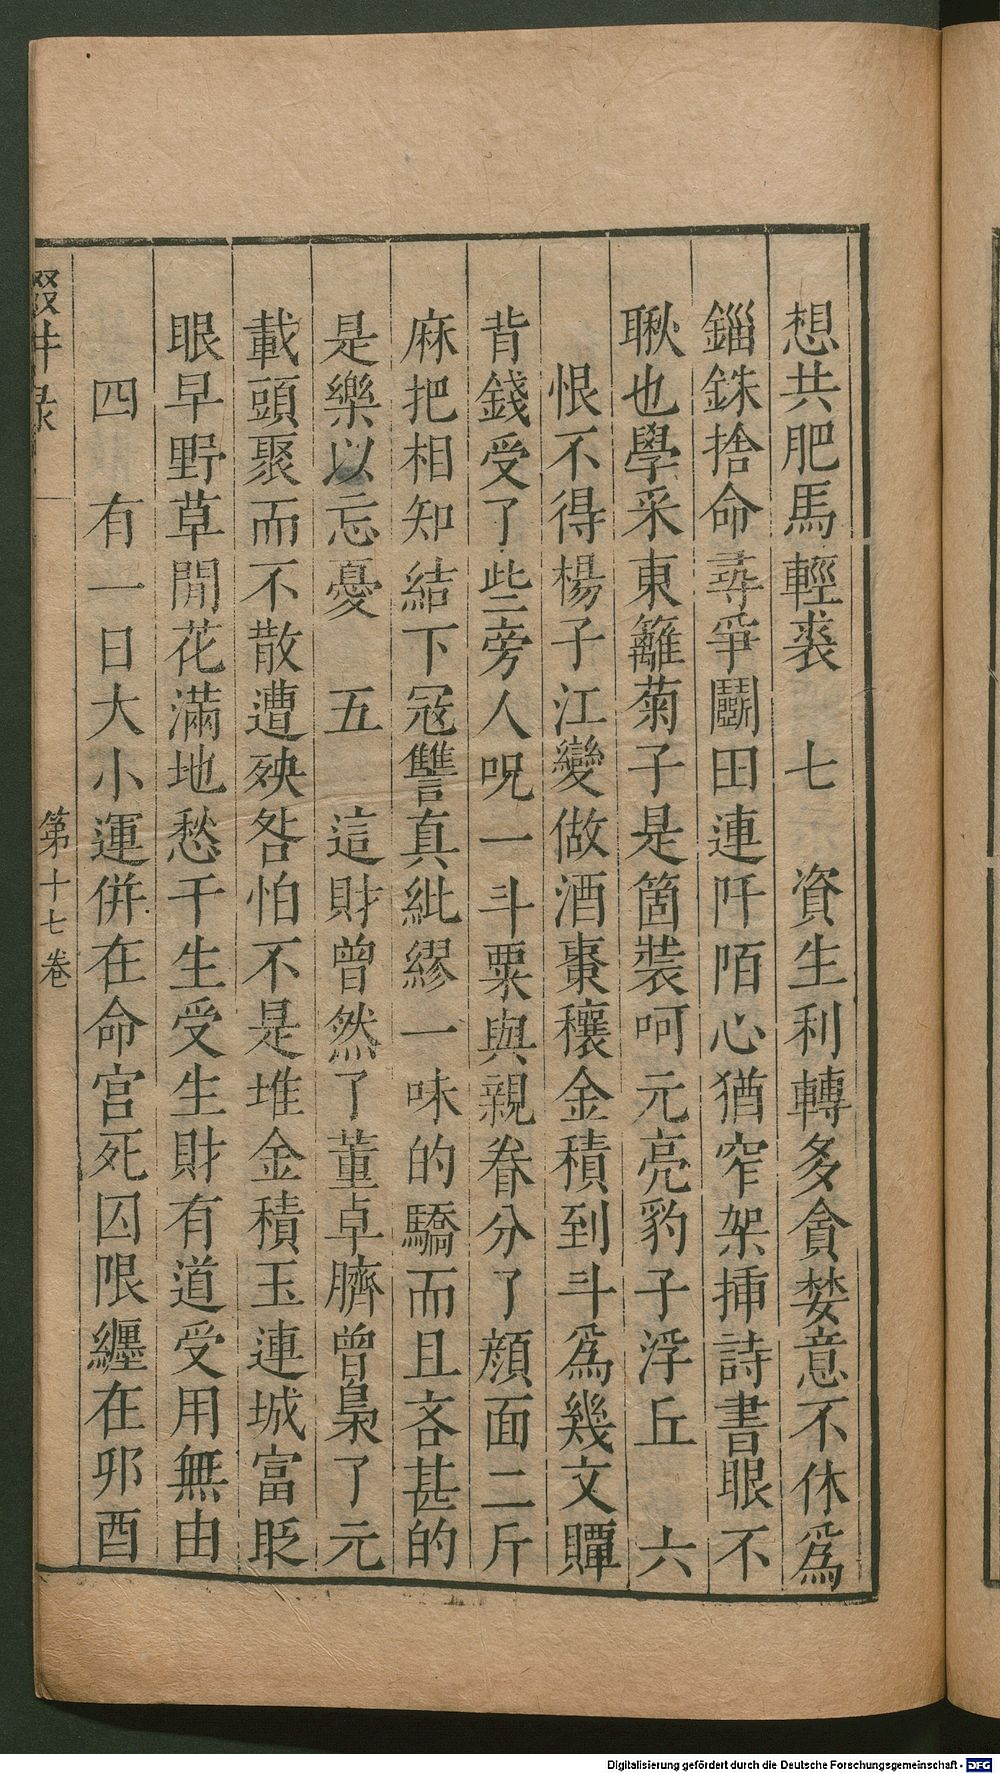 想共肥馬輕裘　七　資生利轉多貪婪意不休爲
錙銖捨命尋爭鬭田連阡陌心猶窄架揷詩書眼不
瞅也學采東籬菊子是箇裝呵元亮豹子浮丘　六
恨不得楊子江變做酒棗穰金積到斗爲幾文贉
背錢受了些旁人呪一斗粟與親眷分了顔面二斤
麻把相知結下冦讐真紕繆一味的驕而且吝甚的
是樂以忘憂　五　這財曾然了董卓臍曾梟了元
載頭聚而不散遭殃咎怕不是堆金積玉連城富眨
眼早野草閒花滿地愁干生受生財有道受用無由
四　有一日大小運併在命宫死囚限纒在夘酉
輟畊录
第十七卷
Digitalisierung gefördert durch die Deutsche Forschungsgemeinschaft - DFG